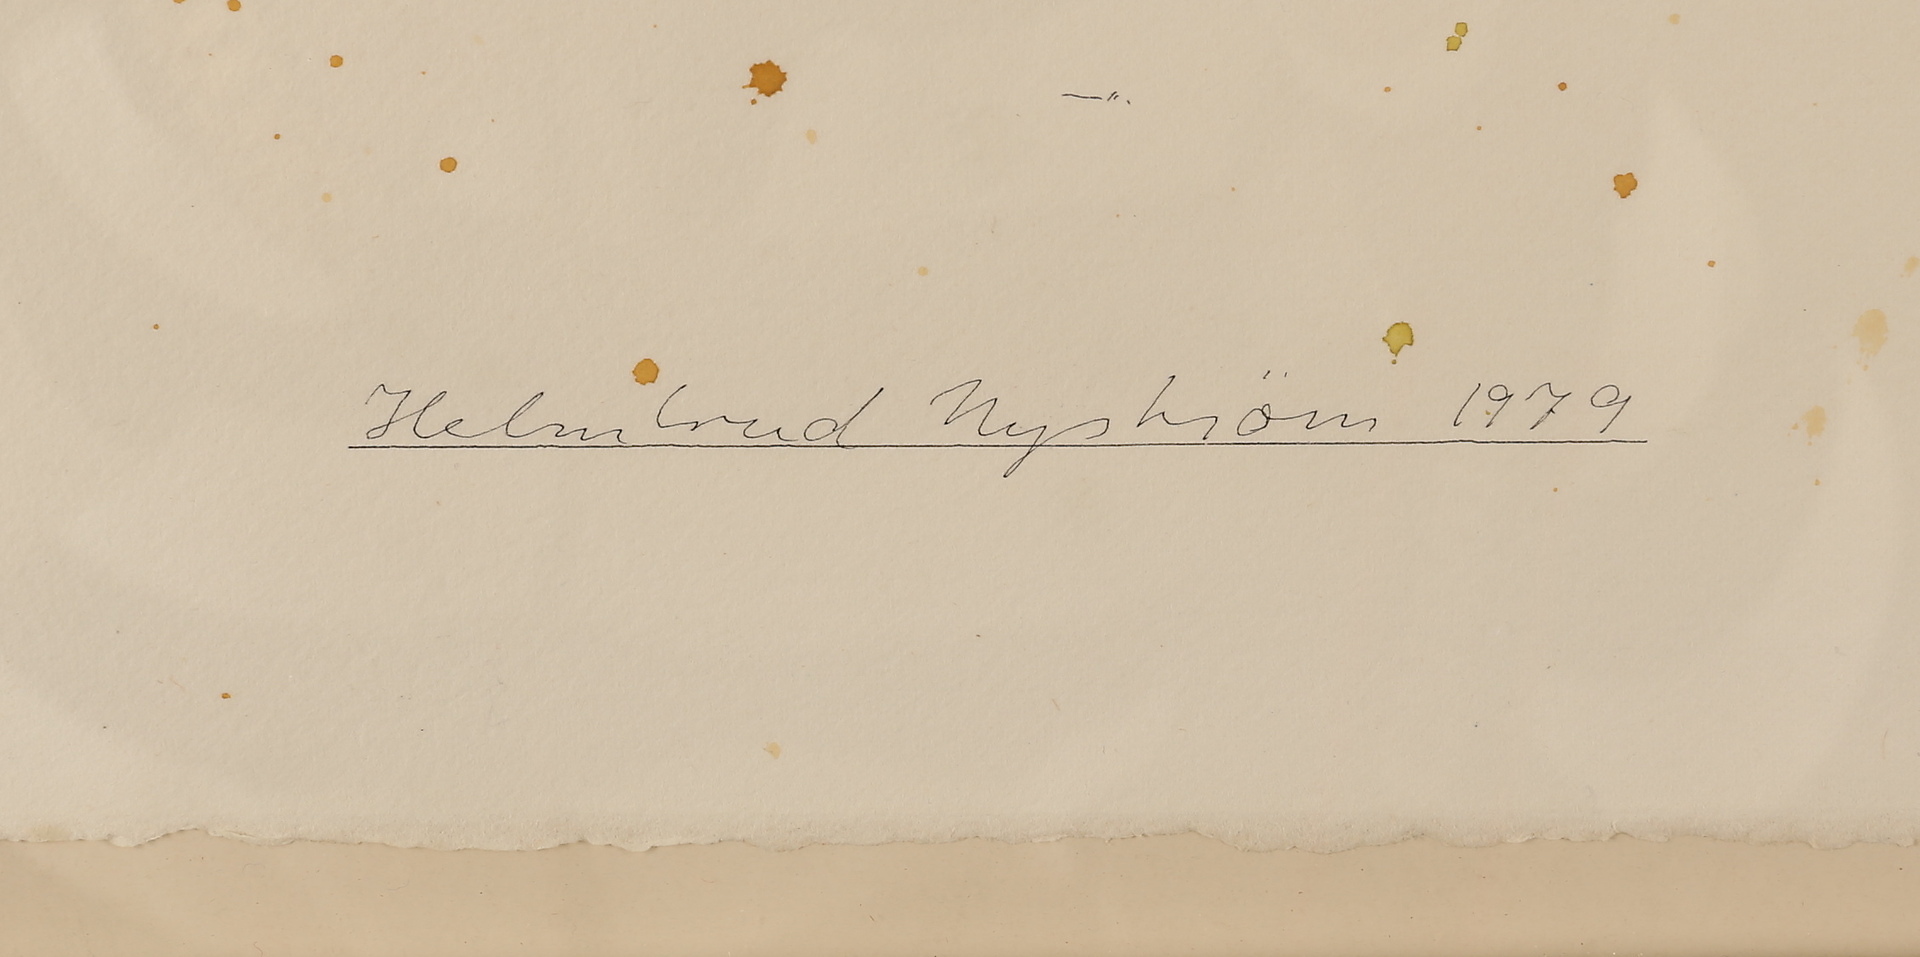 Helmtrud Nyström 1979